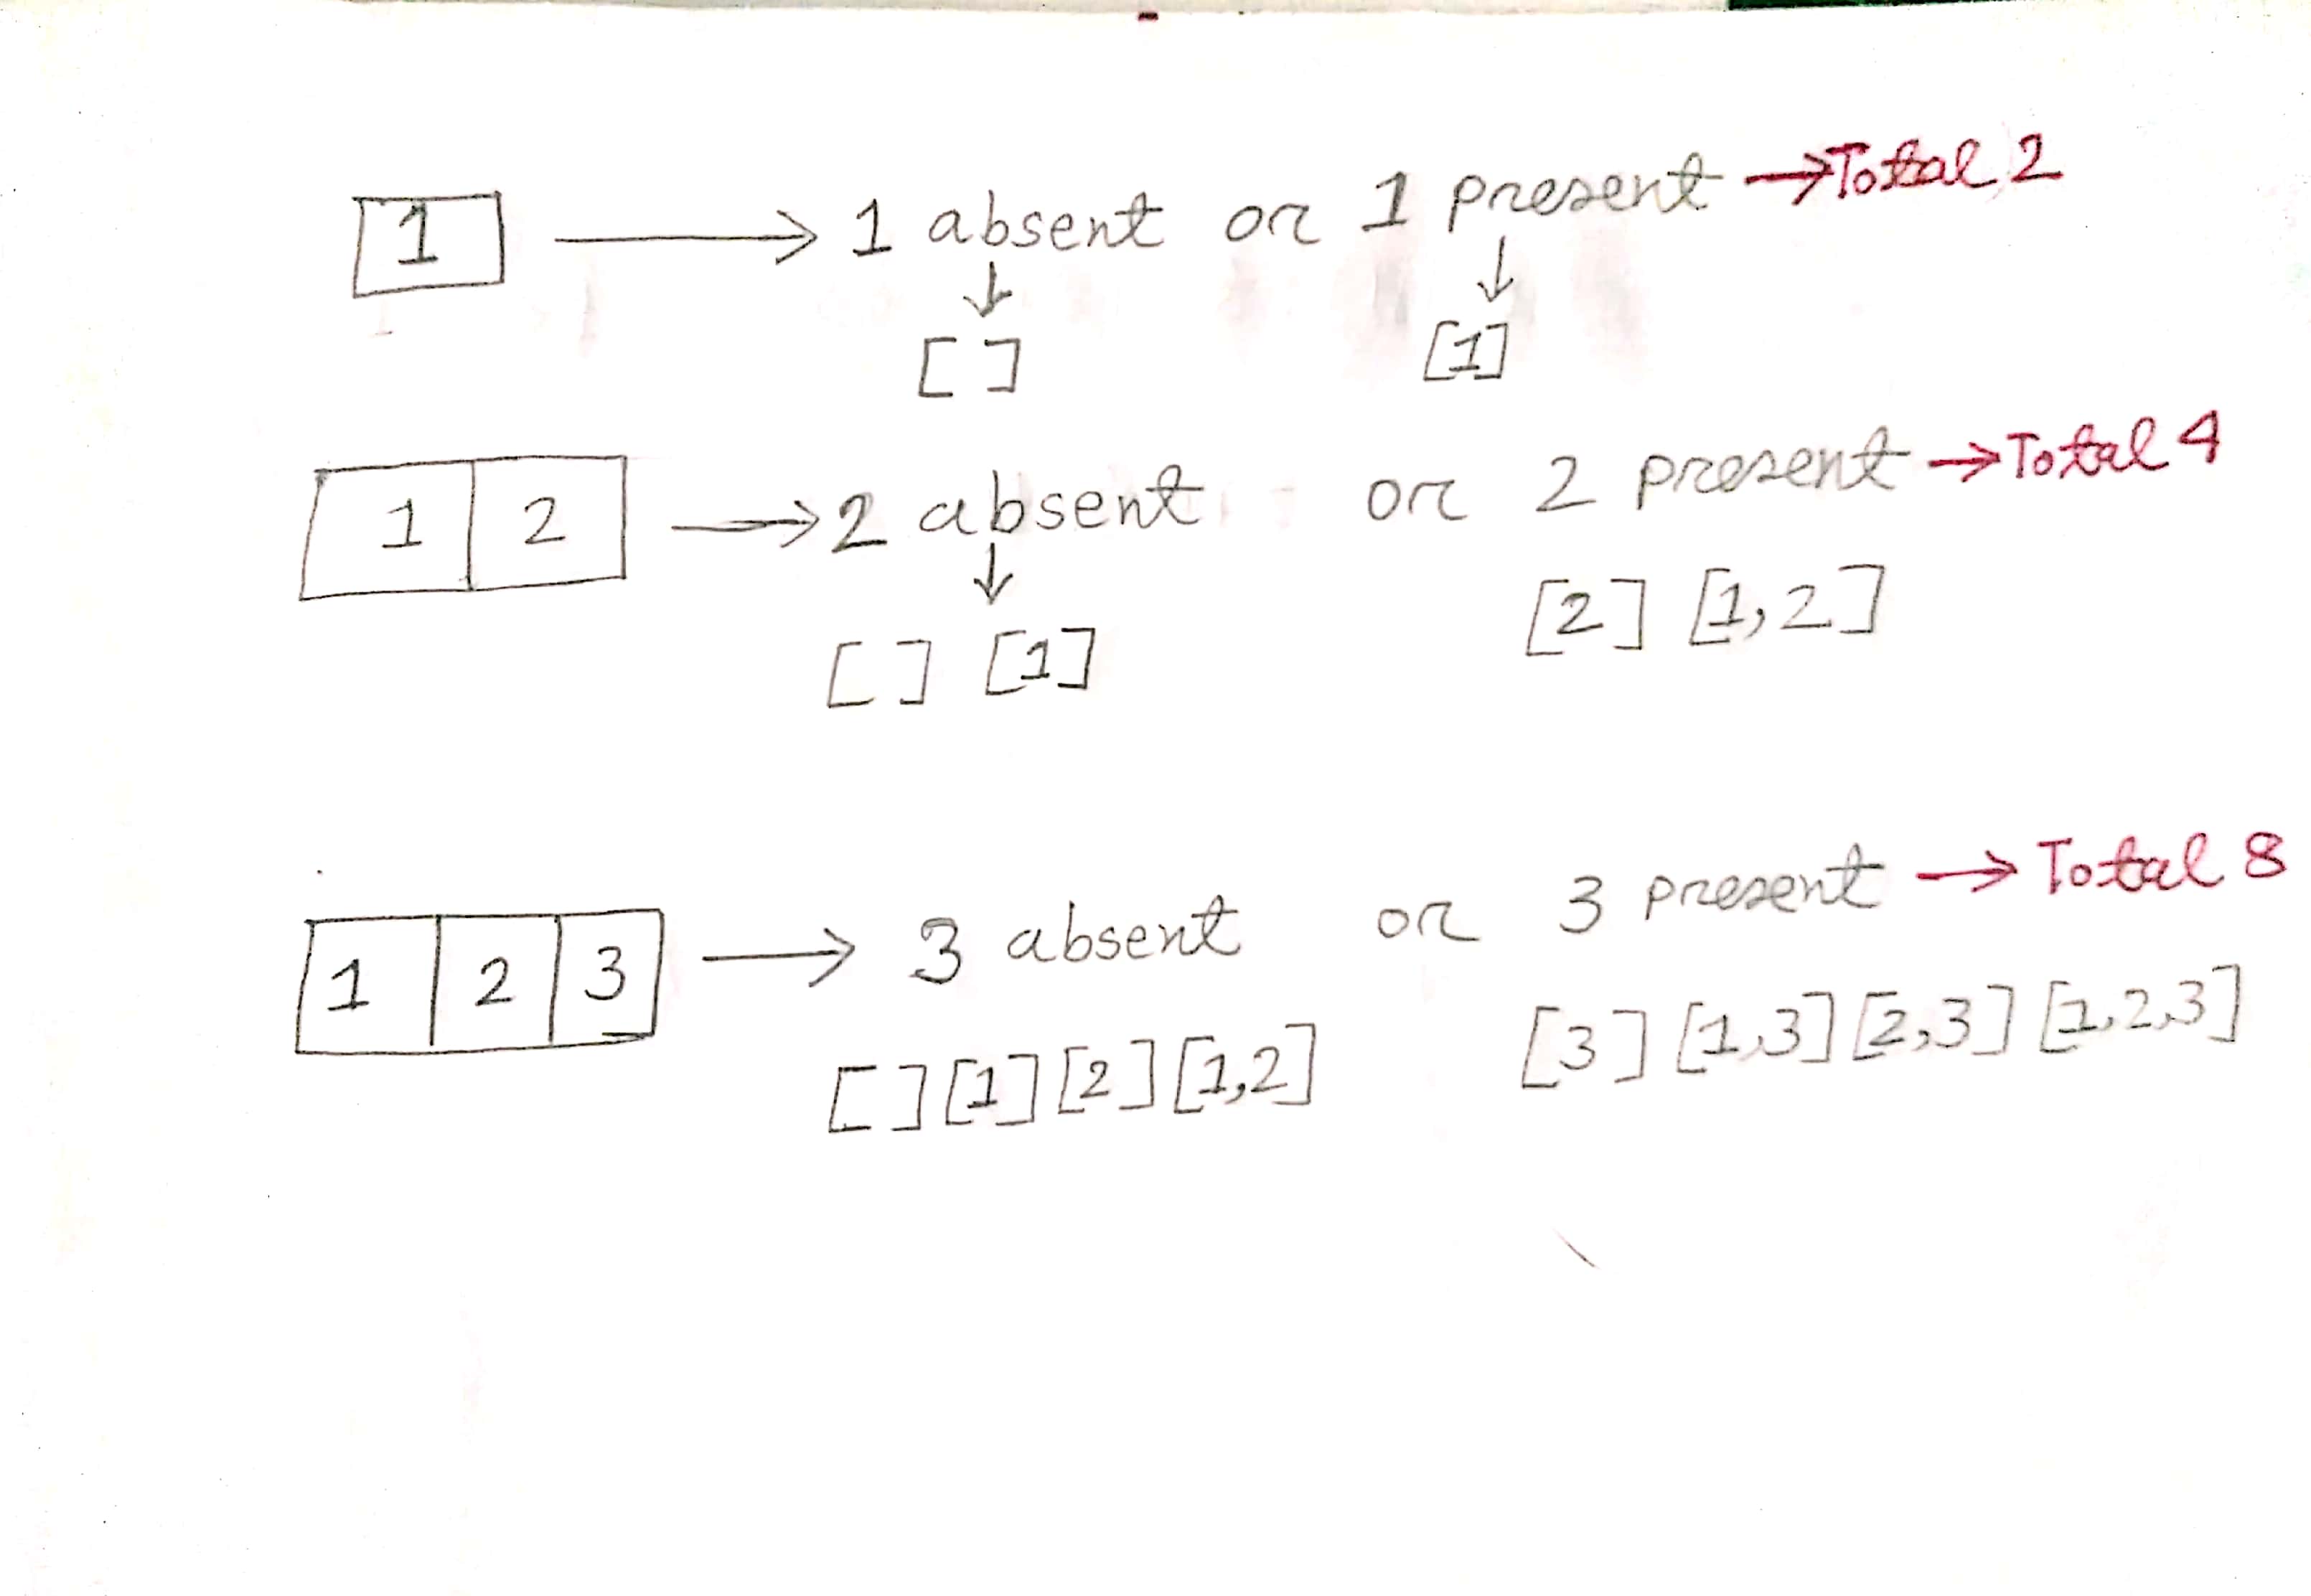 1 → 1 absent or 1 present → Total 2
↓ ↓
[ ] [1]
1 2 → 2 absent or 2 present → Total 4
↓
[ ] [1] [2] [1,2]
1 2 3 → 3 absent or 3 present → Total 8
[ ] [1] [2] [1,2] [3] [1,3] [2,3] [1,2,3]